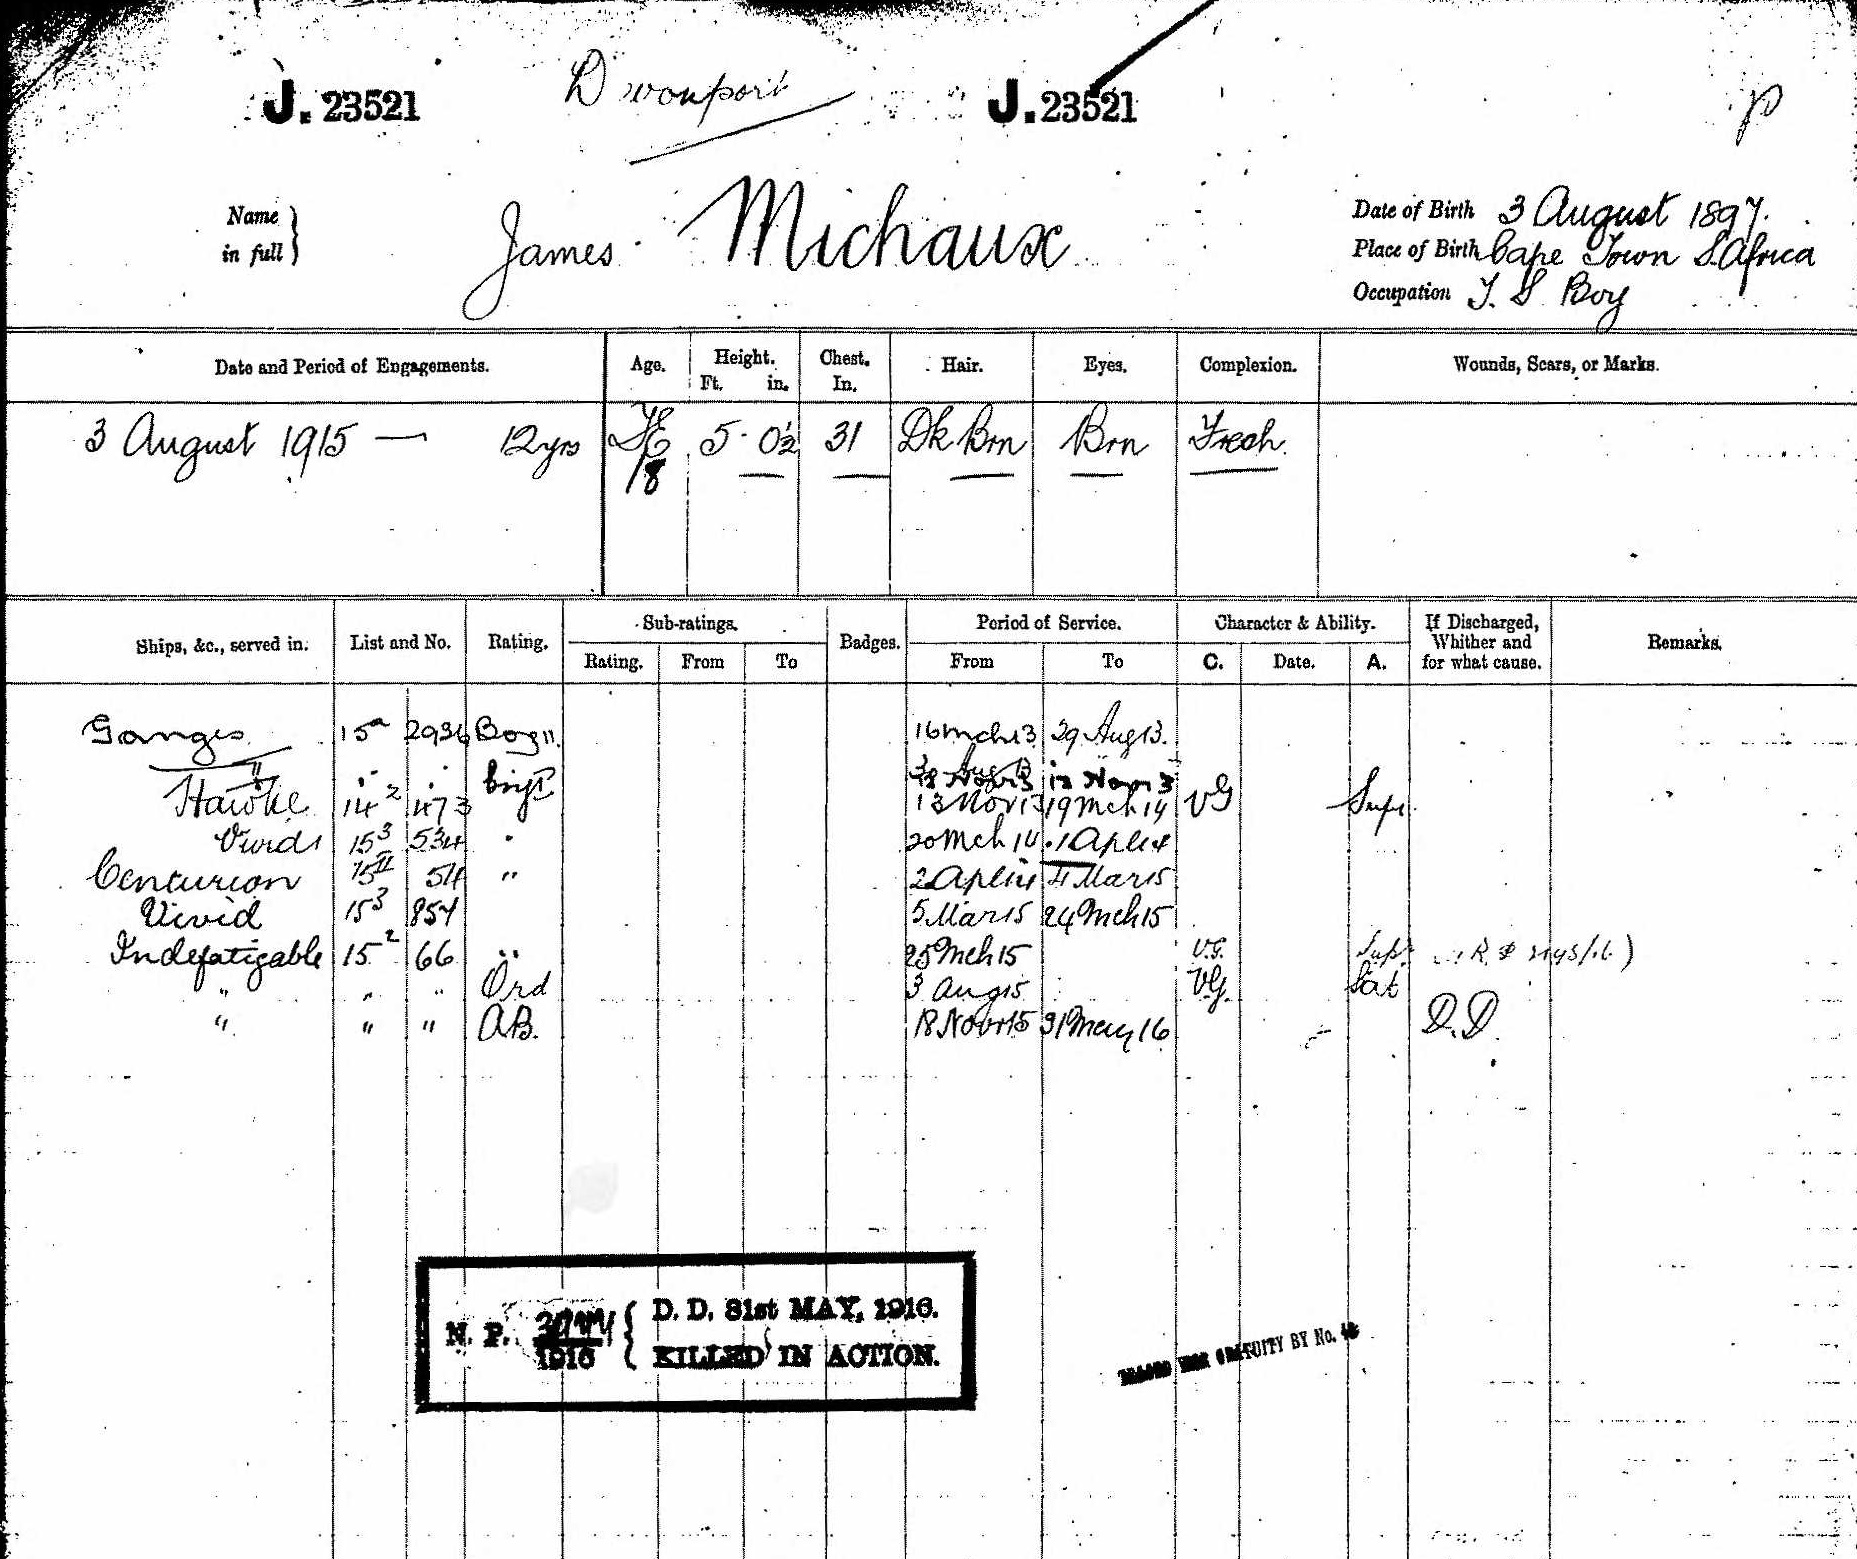 J. 23521 Devonport J. 23521 P
Name in full } James Michaux
Date of Birth 3 August 1897.
Place of Birth Cape Town S. Africa
Occupation T. S Boy
Date and Period of Engagements. Age. Height. Ft. in. Chest. In. Hair. Eyes. Complexion. Wounds, Scars, or Marks.
3 August 1915 — 12 yrs 18 5 . 0½ 31 Dk Brn Brn Fresh.
Ships, &c., served in. List and No. Rating. Sub-ratings. Rating. From To Badges. Period of Service. From To Character & Ability. C. Date. A. If Discharged, Whither and for what cause. Remarks.
Ganges 15a 2936 Boy II. 16 Mch 13 29 Aug 13.
" " " 30 Aug 13 12 Nov 13
Hawke 14² 473 13 Nov 13 19 Mch 14 VG Supr
Vivid I 15³ 534 " 20 Mch 14 1 Apl 14
Centurion 15II 54 " 2 Apl 14 4 Mar 15
Vivid 15³ 854 5 Mar 15 24 Mch 15
Indefatigable 15² 66 " 25 Mch 15 V.G. Supr
" " " Ord 3 Aug 15 VG. Sat
" " " AB. 18 Novr 15 31 May 16 D.D
N. P. 1916 { D. D. 31st MAY, 1916.
KILLED IN ACTION.
WAR GRATUITY BY No.